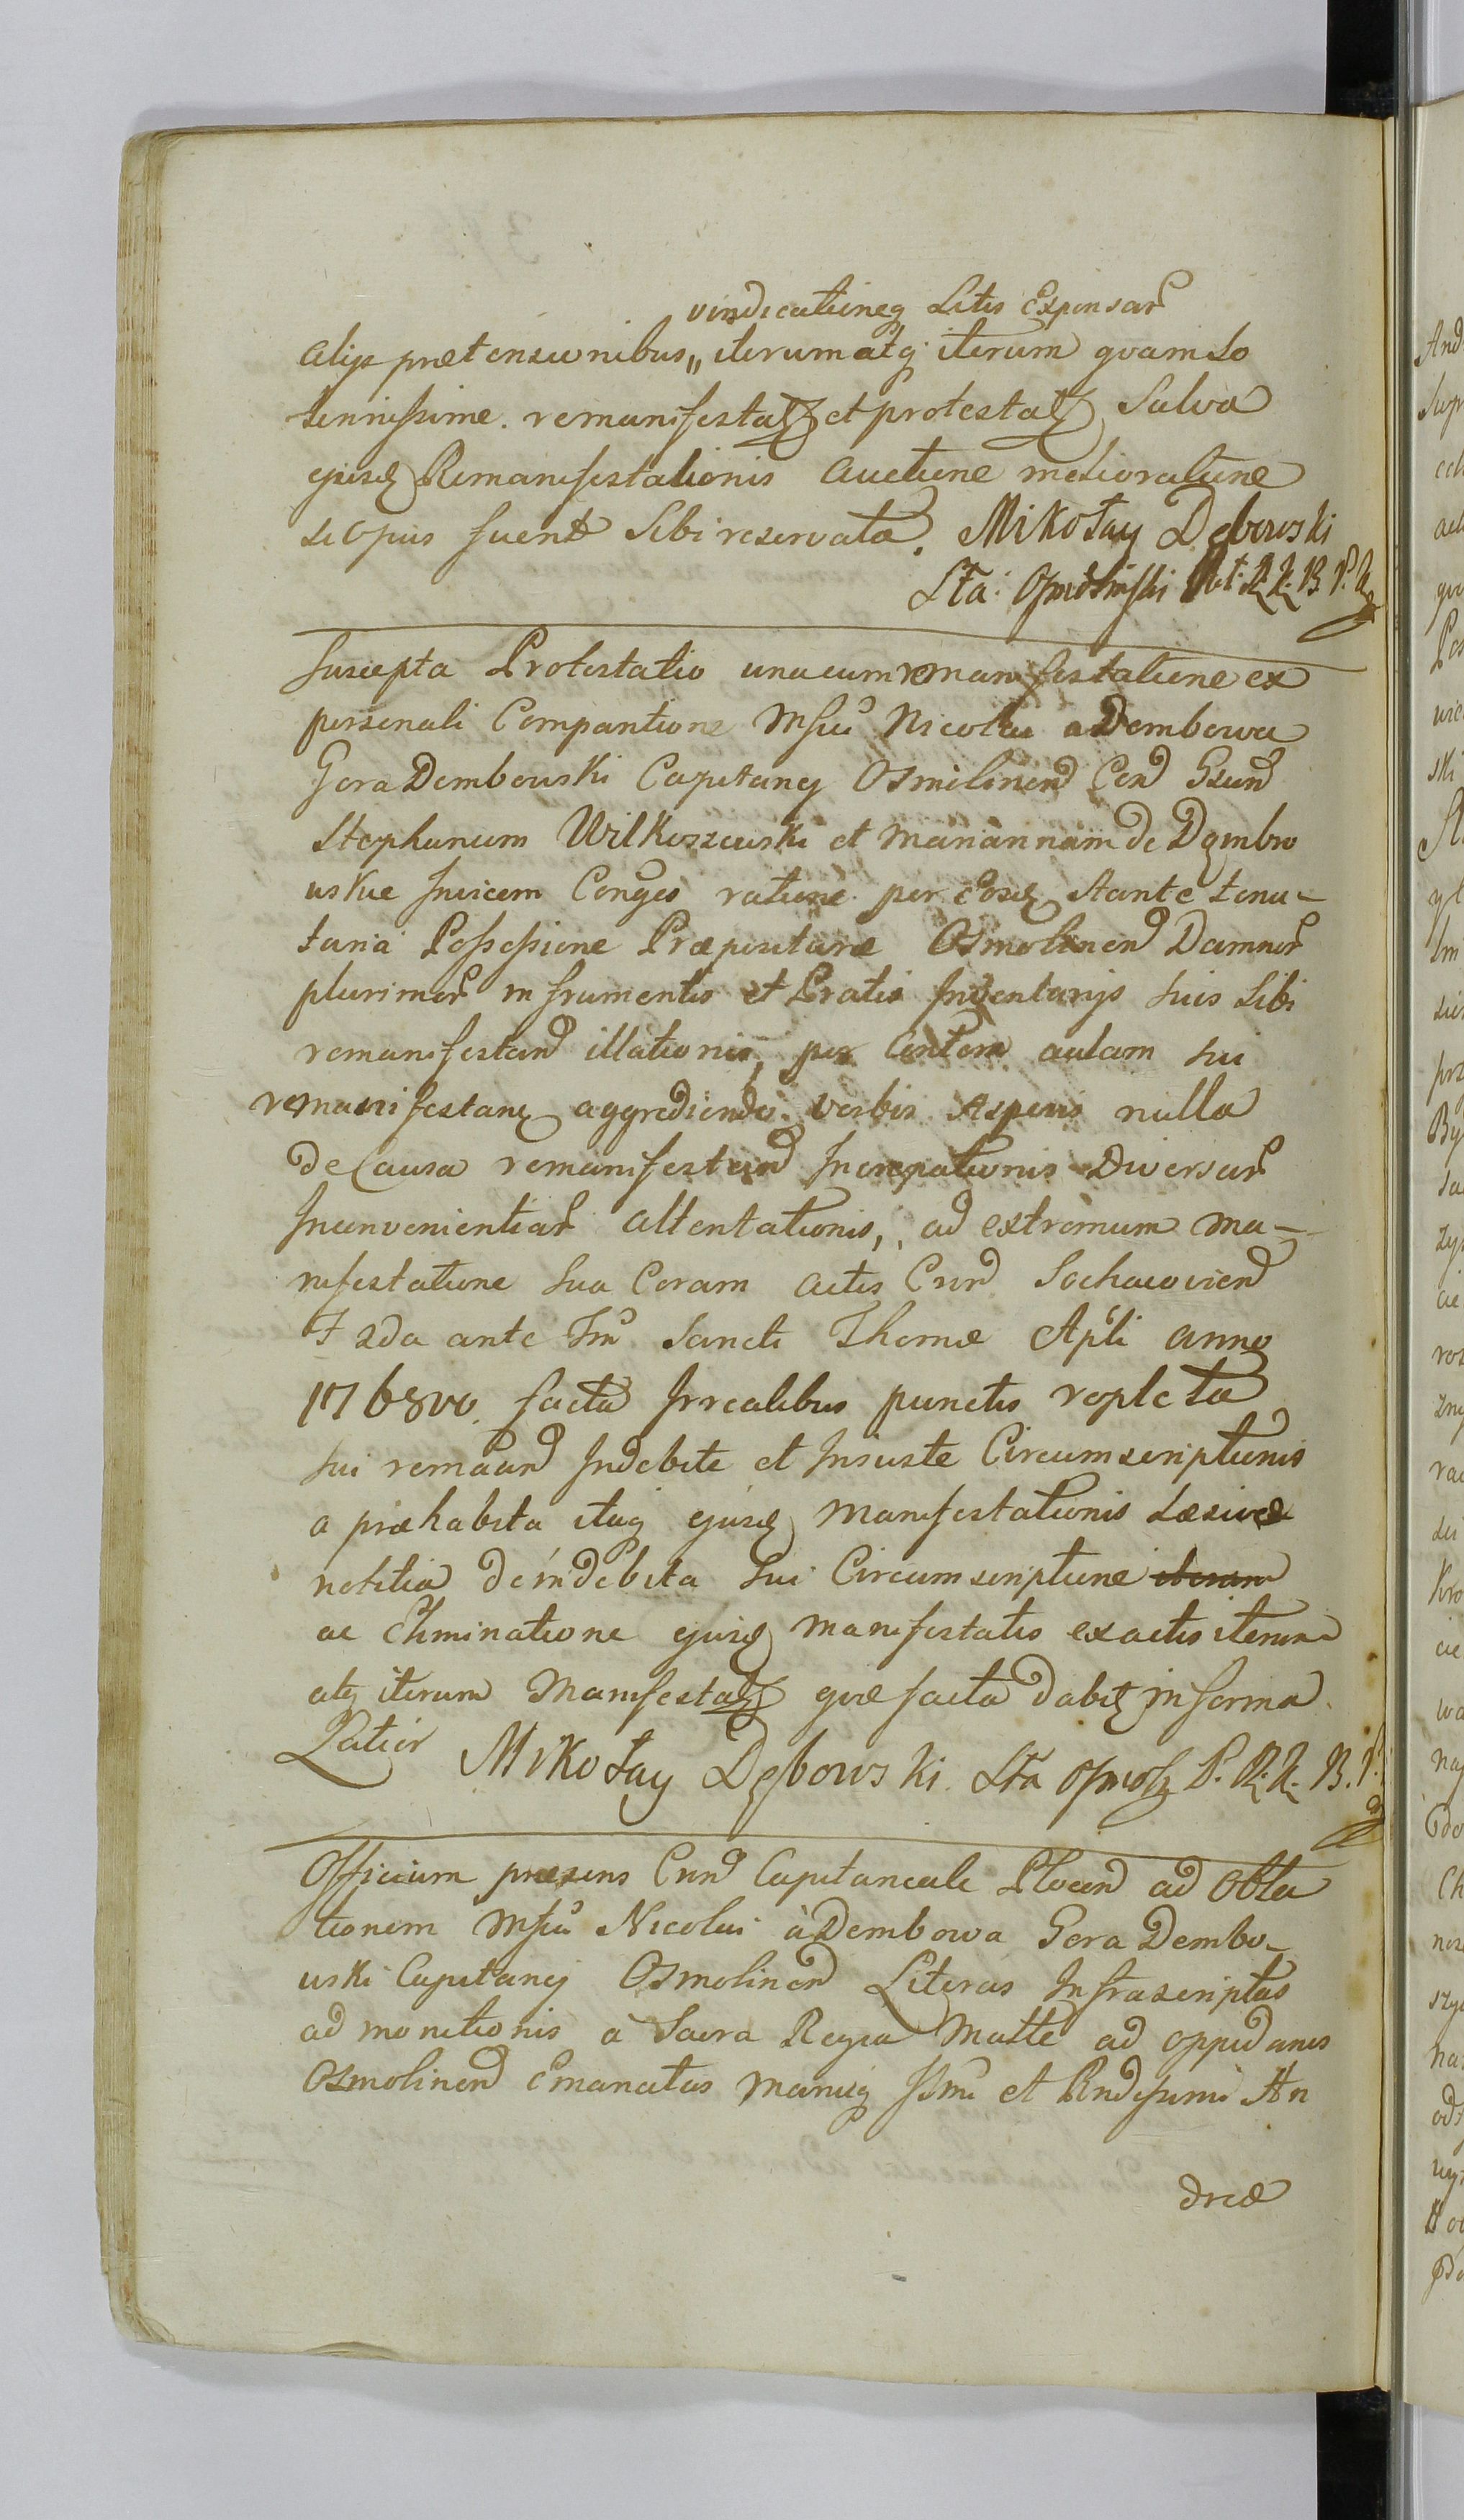 vindicationeq Litis Expensar
alijs prætensionibus,, iterum atq iterum quam So
lennissime. remanifestatz et protestatz Salva
ejusd Remanifestationis auctione melioratione
si Opus fuerit Sibi reservata. Mikołay Dębowski
Sta: Osmoliński
Suscepta Protestatio unacum remanifestatione ex
personali Comparitione Msfci Nicolai a Dembowa
Gora Dembowski Capitanej Osmolinens Con Gsum
Stephanum Wilkoszewski et Mariannam de Dąmbro
wskie Invicem Conges ratione per eosd Stante tenu-
taria Possessione Præpositure Osmolinens Damnor
plurimor in frumentis et Pratis Inventarijs suis Sibi
remanifestan illationis, per Centem aulam sui
remanifestans aggrediendo verbis Asperis nulla
de Causa remanifestan Increpationis Diversar
Inconvenientiar attentationis, ad extremum ma-
nifestatione sua Coram actis Crsn Sochaciovien
F 2da ante Fm Sancti Thomæ Apli anno
1768vo. facta Irrealibus punctis repleta
sui remaan Indebite et Iniuste Circumscriptionis
a præhabita itaq ejusd Manifestationis Læsivæ
notitia de indebita sui Circumscriptione iterum
ac Eliminatione ejusd Manifestatis exactis iterum
atq iterum Manifestatz quæ facta dabit in forma
Patior Mikołay Dębowski Sta Osmols P. R. R. B. P.
Officium præsens Crsn Capitaneale Plocen ad Obla
tionem Msfci Nicolai à Dembowa Gora Dembo-
wski Capitanej Osmolinen Literas Infrascriptas
ad monitionis à Sacra Regia Matte ad oppidanos
Osmolinen Emanatas manuq Ilmi et Rndissimi An
dreæ